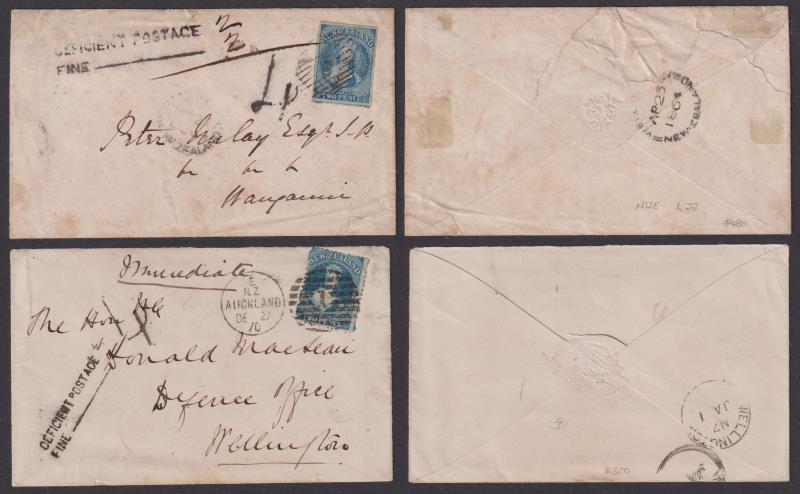 DEFICIENT POSTAGE
FINE
2/2
NEW ZEALAND
TWO PENCE
Peter Imlay Esqr J.P.
Wanganui
NEW ZEALAND
AP 23
1864
NEW ZEALAND
#480
Immediate
E
N.Z.
AUCKLAND
DE 27
70
NEW ZEALAND
1
The Hon ble
Donald Maclean
Defence Office
Wellington
DEFICIENT POSTAGE
FINE
WELLINGTON
NZ
JA 1
#350